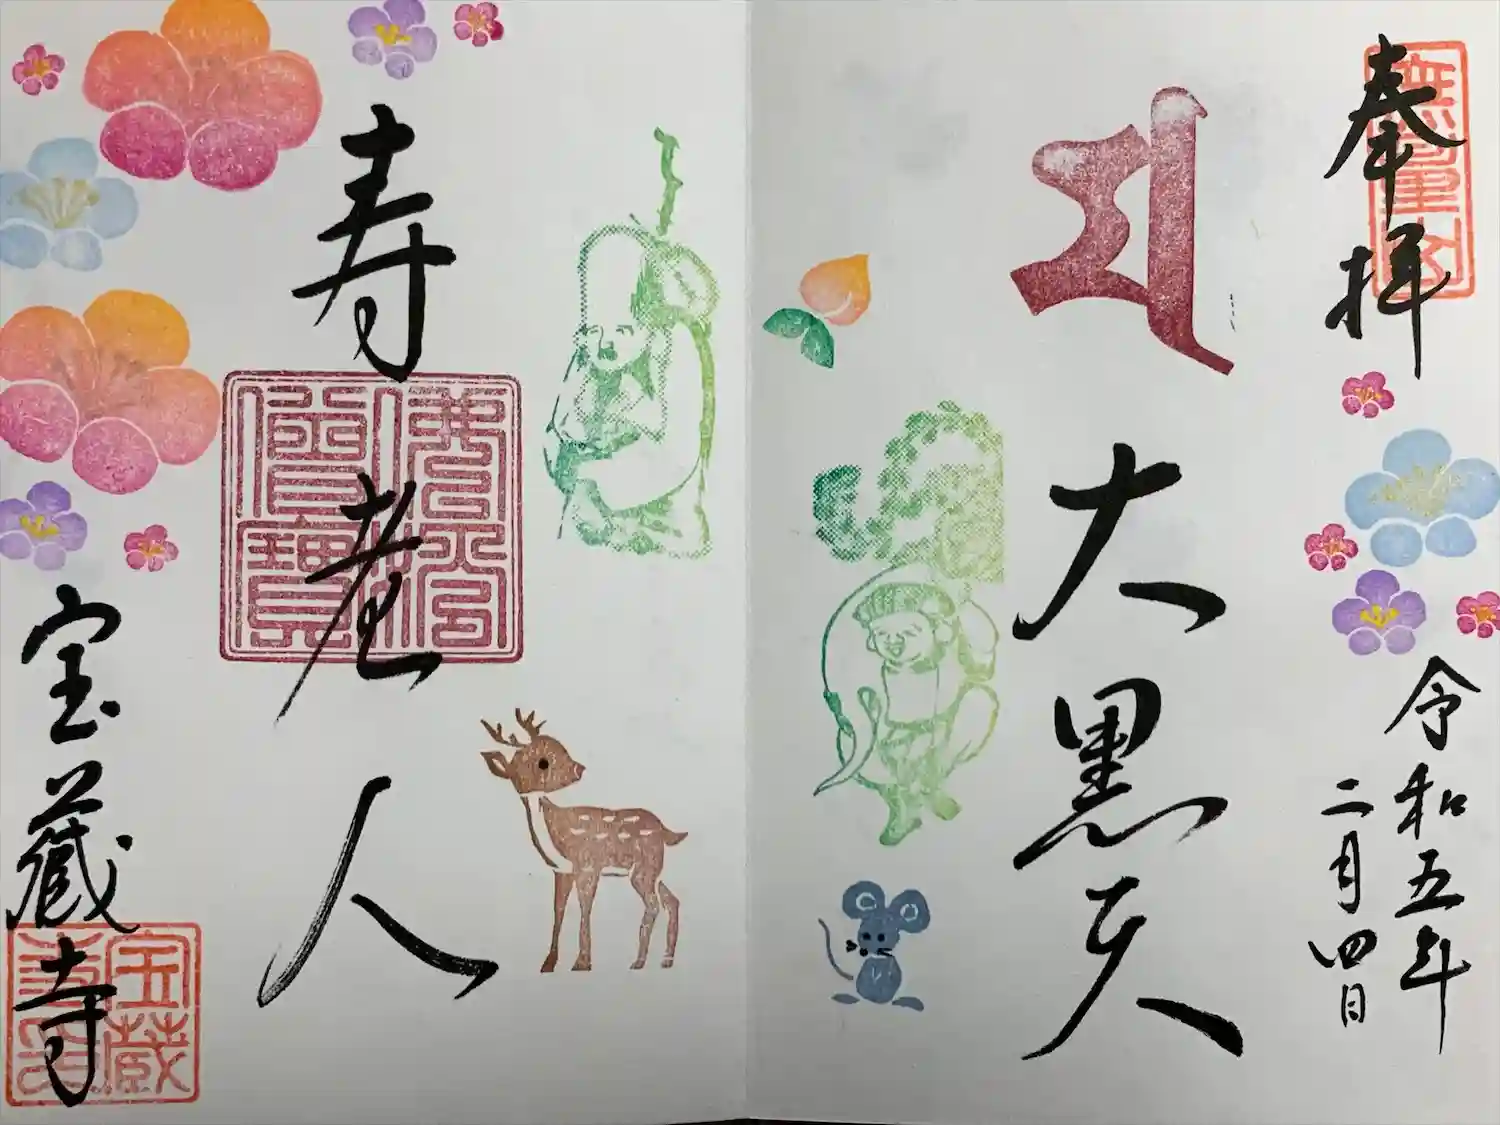 奉拝
無量山
大黒天
令和五年
二月四日
寿老人
宝蔵寺
宝蔵寺印